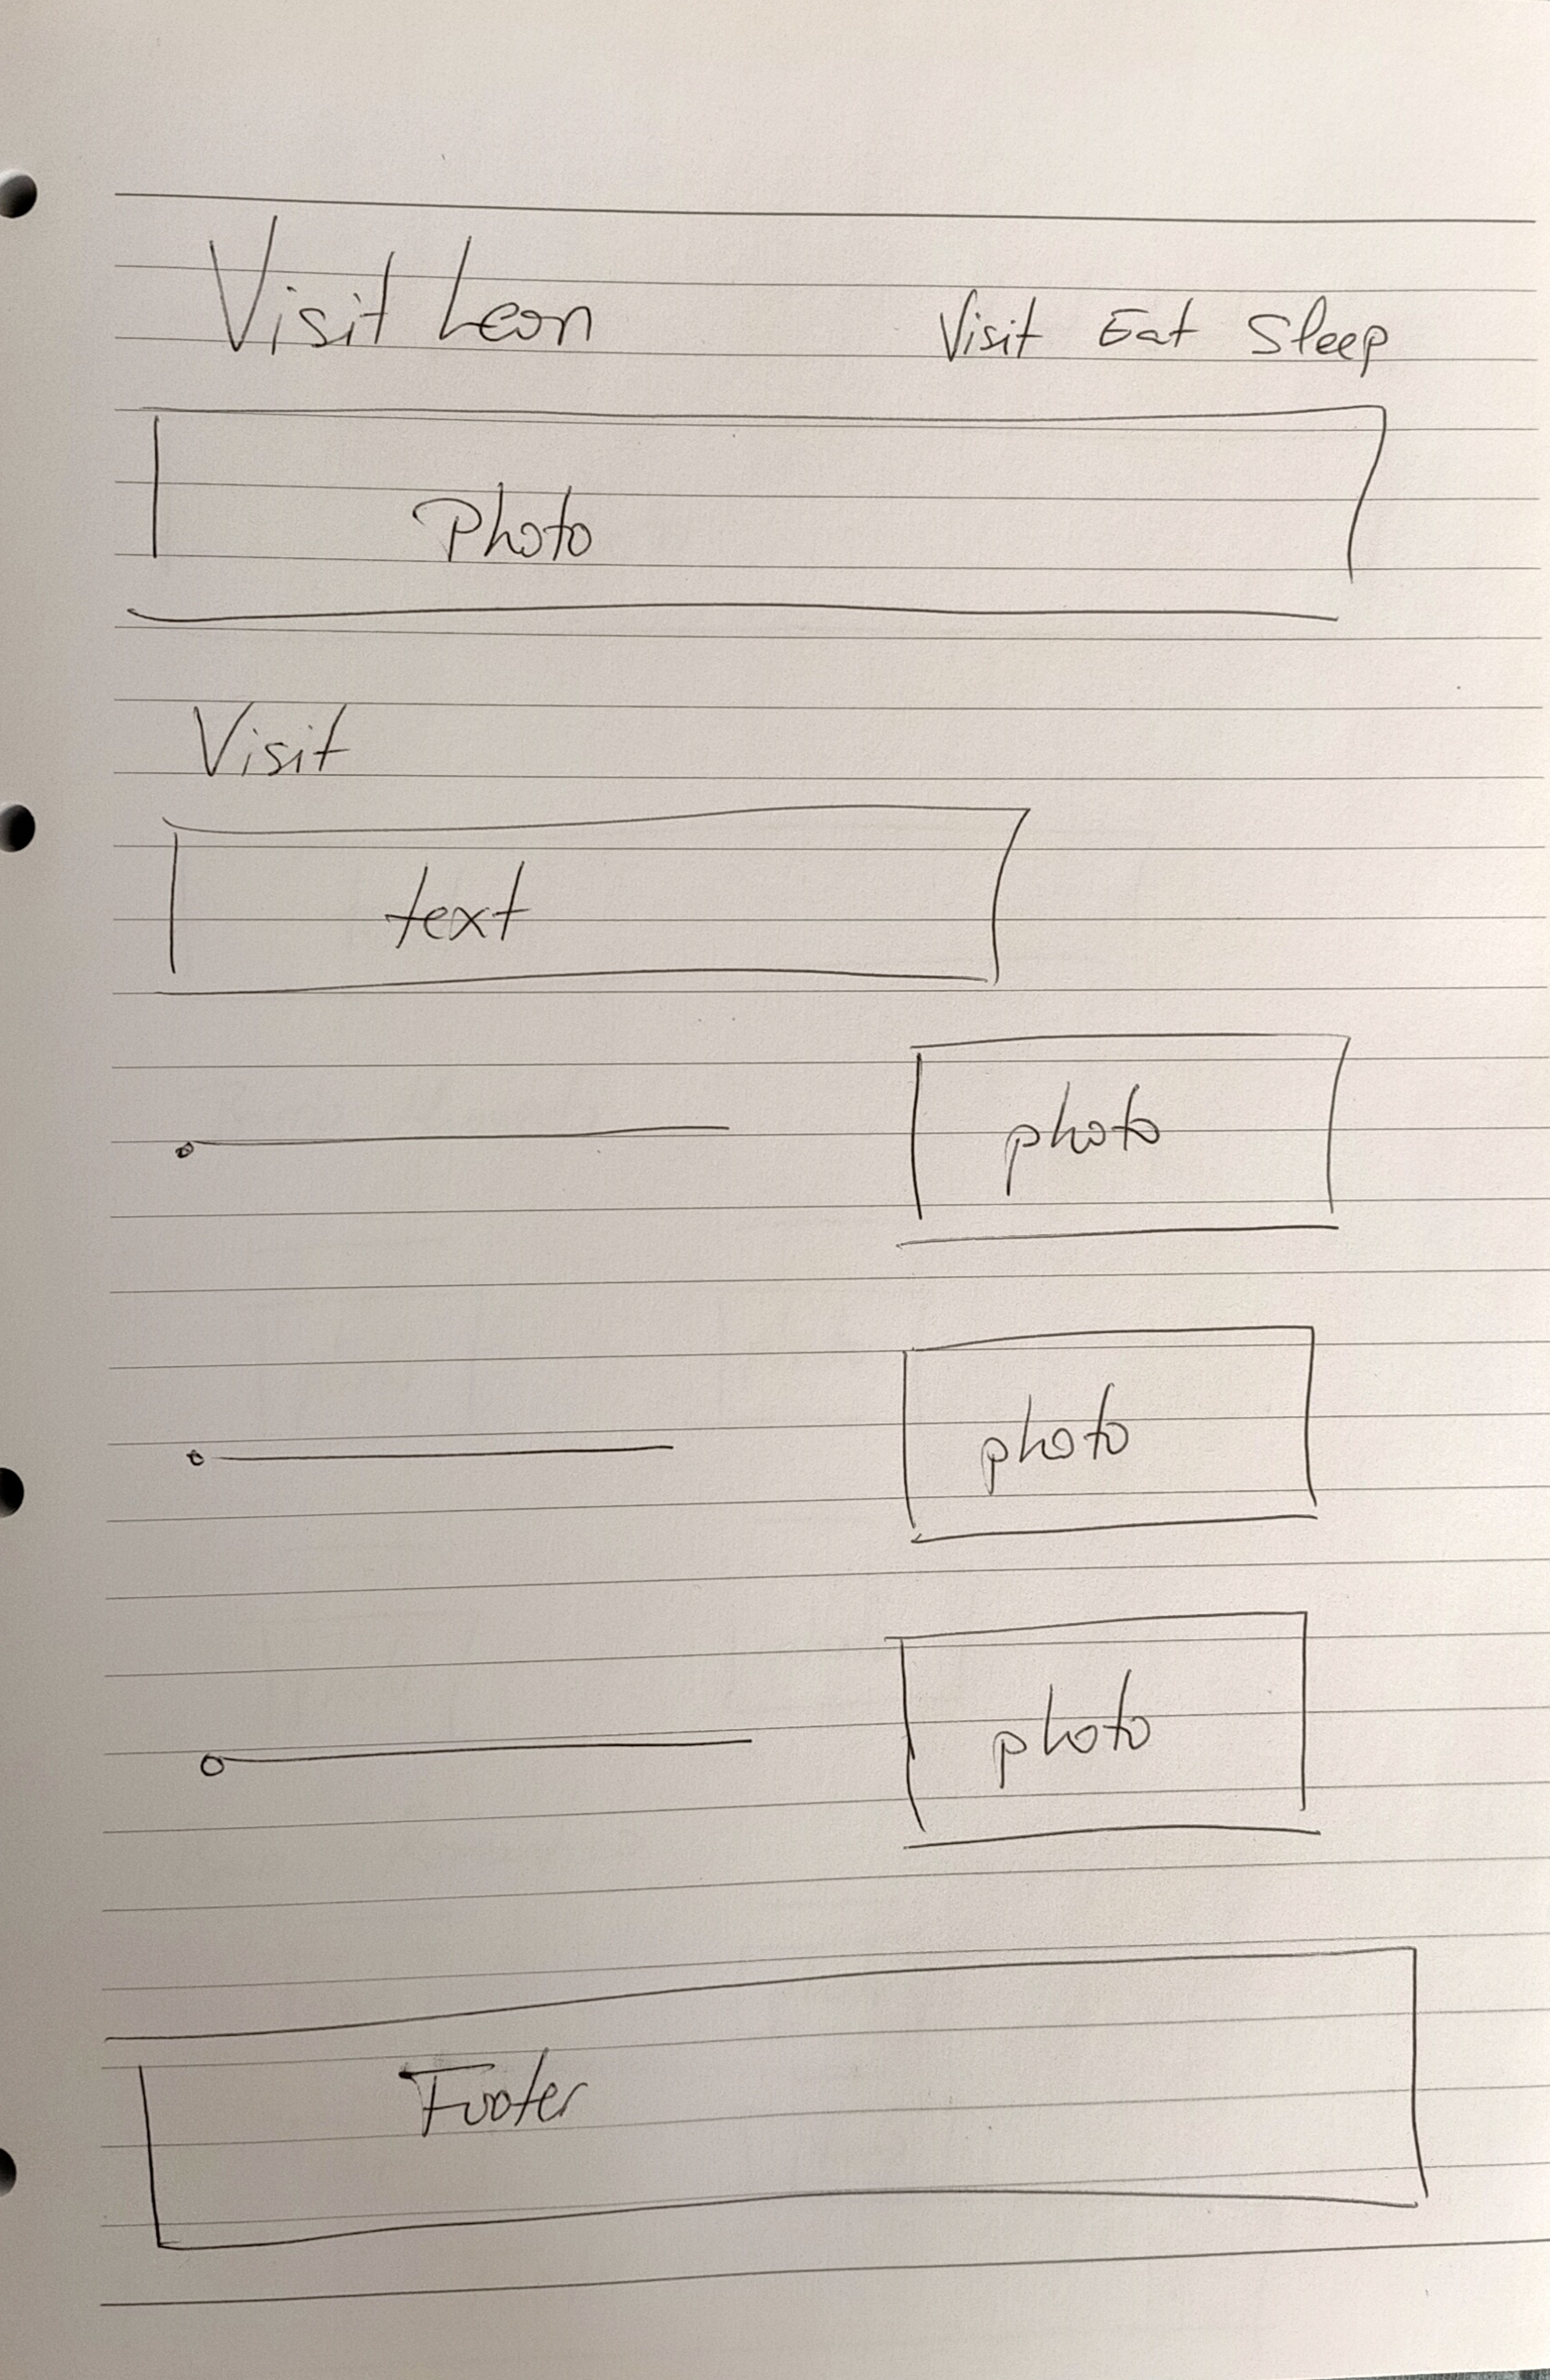 Visit Leon
Visit Eat Sleep
Photo
Visit
text
photo
photo
photo
Footer